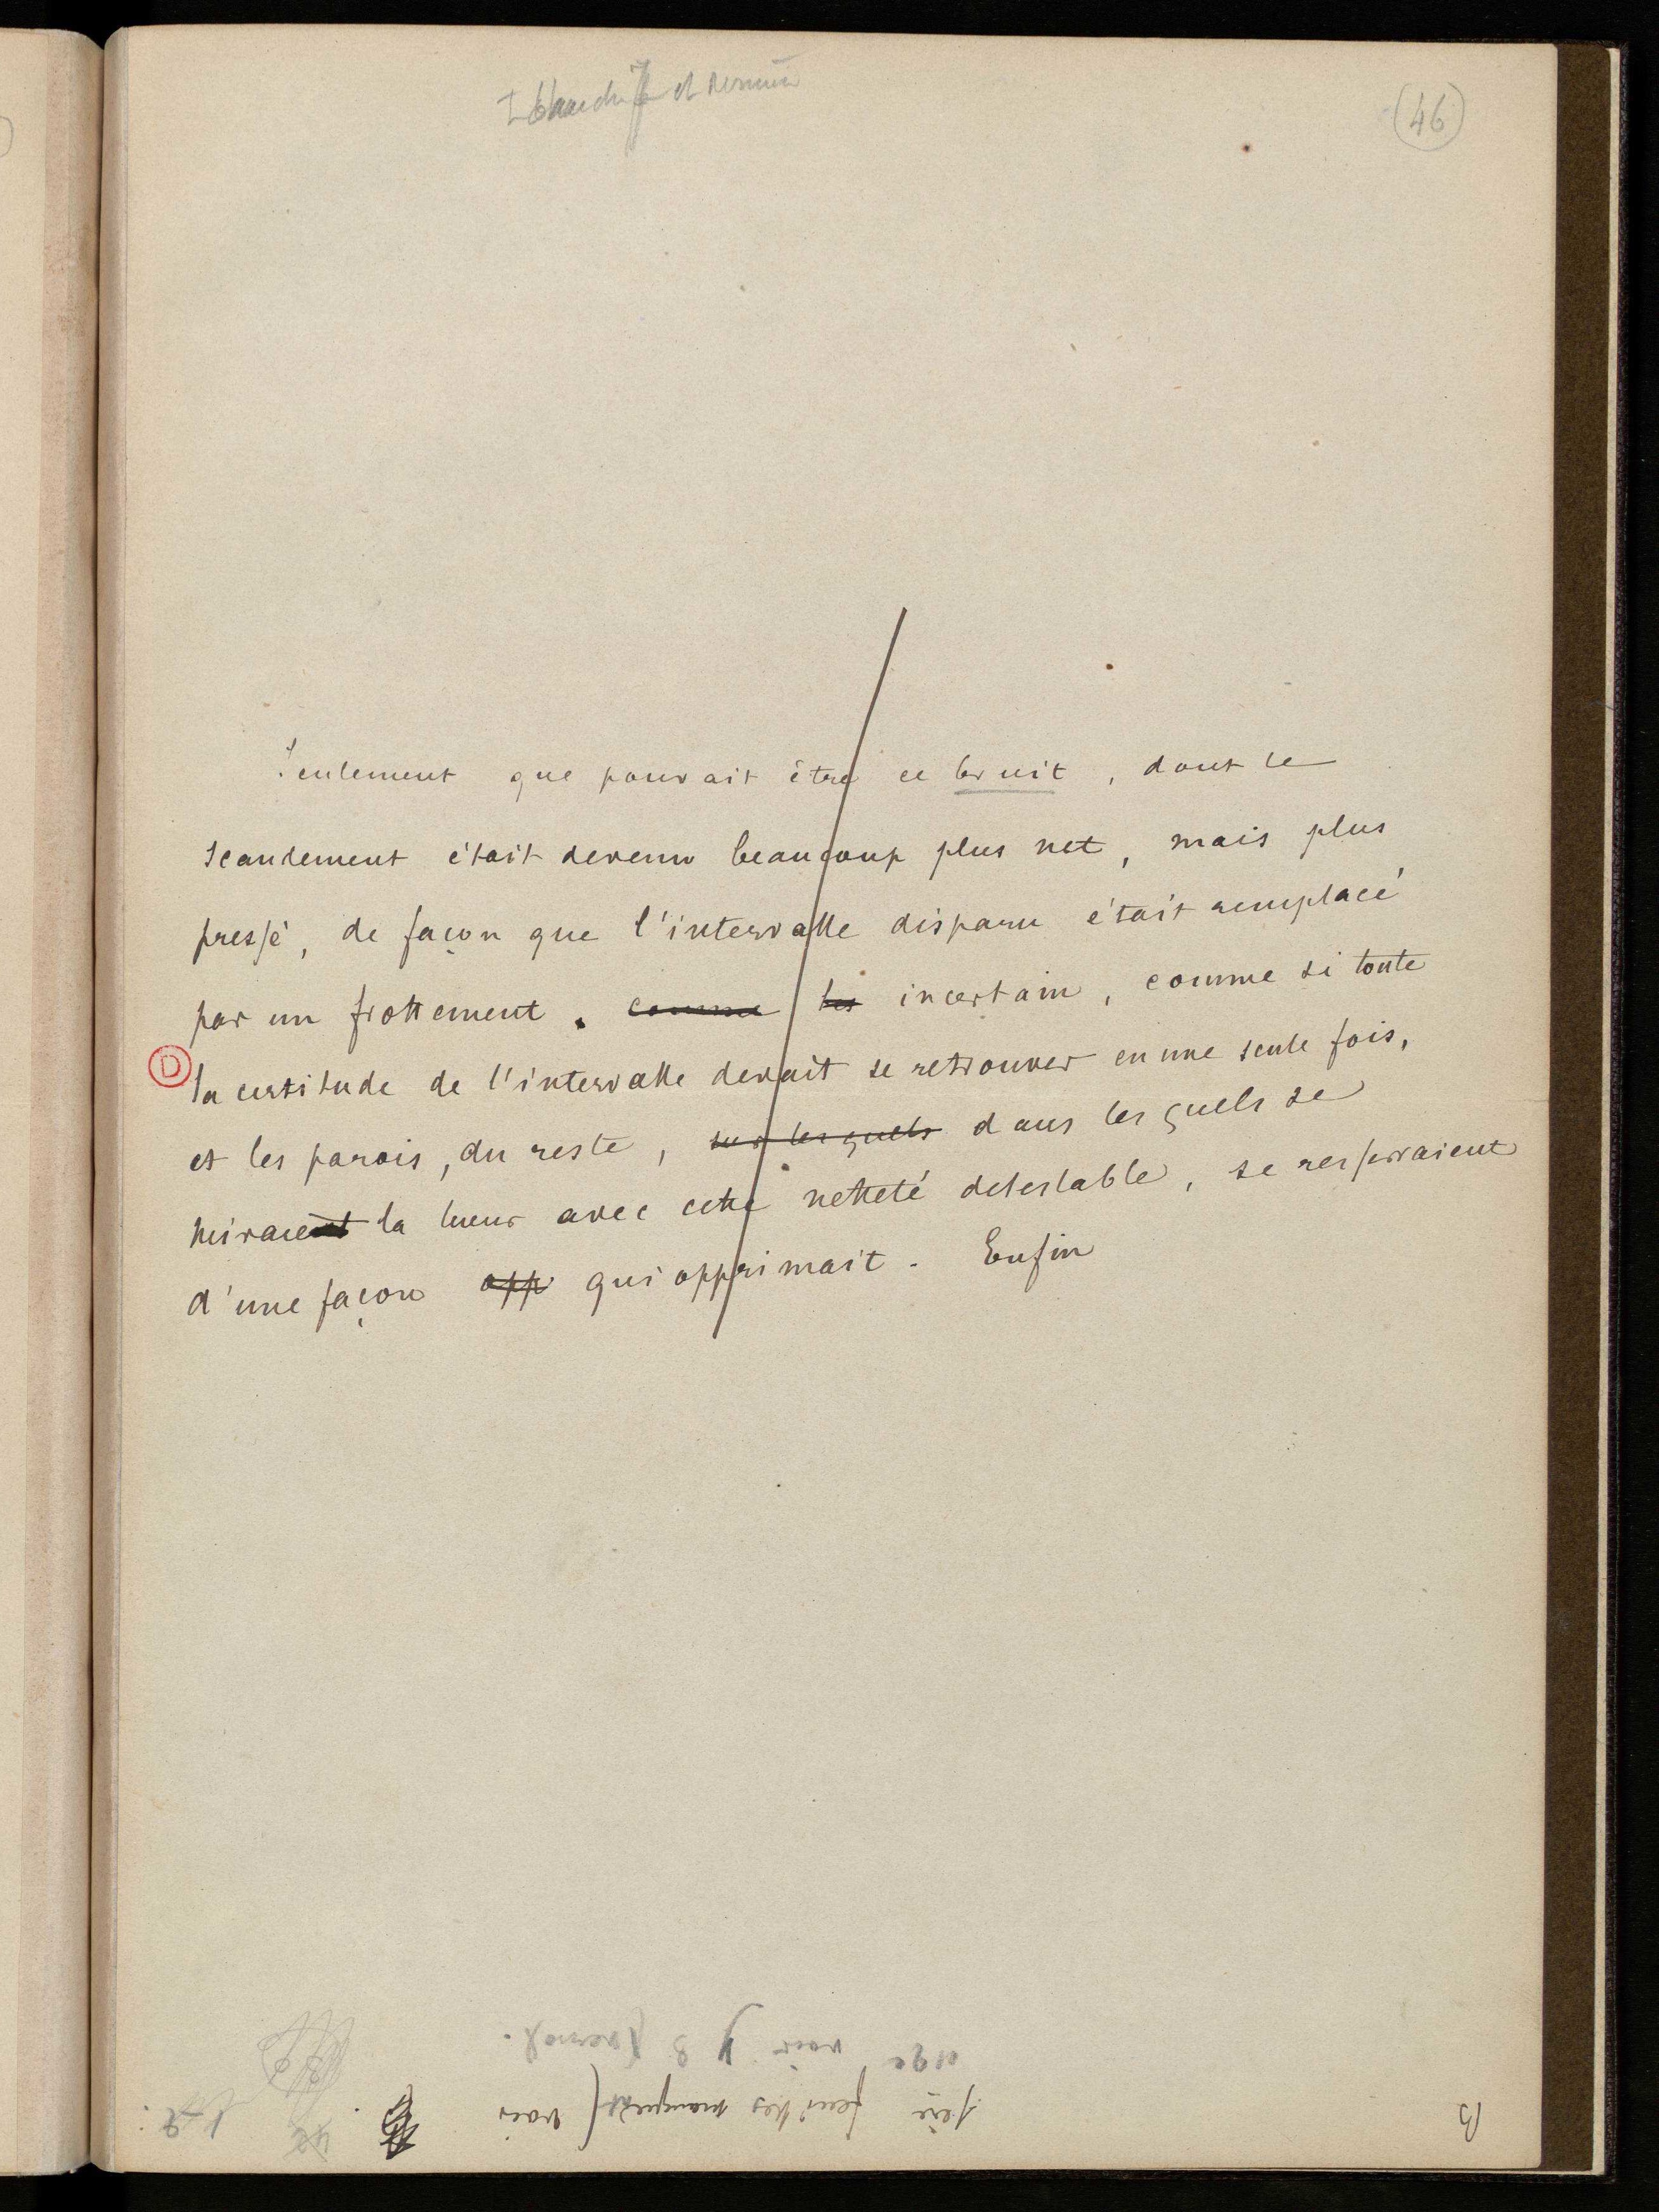 (46)
Seulement que pouvait être ce bruit, dont le
scandement était devenu beaucoup plus net, mais plus
pressé, de façon que l'intervalle disparu était remplacé
par un frottement. comme les incertain, comme si toute
D la certitude de l'intervalle devait se retrouver en une seule fois,
et les parois, du reste, sur lesquels dans lesquels se
miraient la lueur avec cette netteté détestable, se resserraient
d'une façon opp qui opprimait. Enfin
feuilles voir
voir